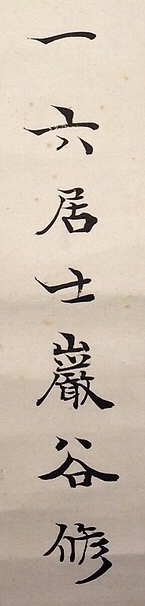 一六居士巖谷修